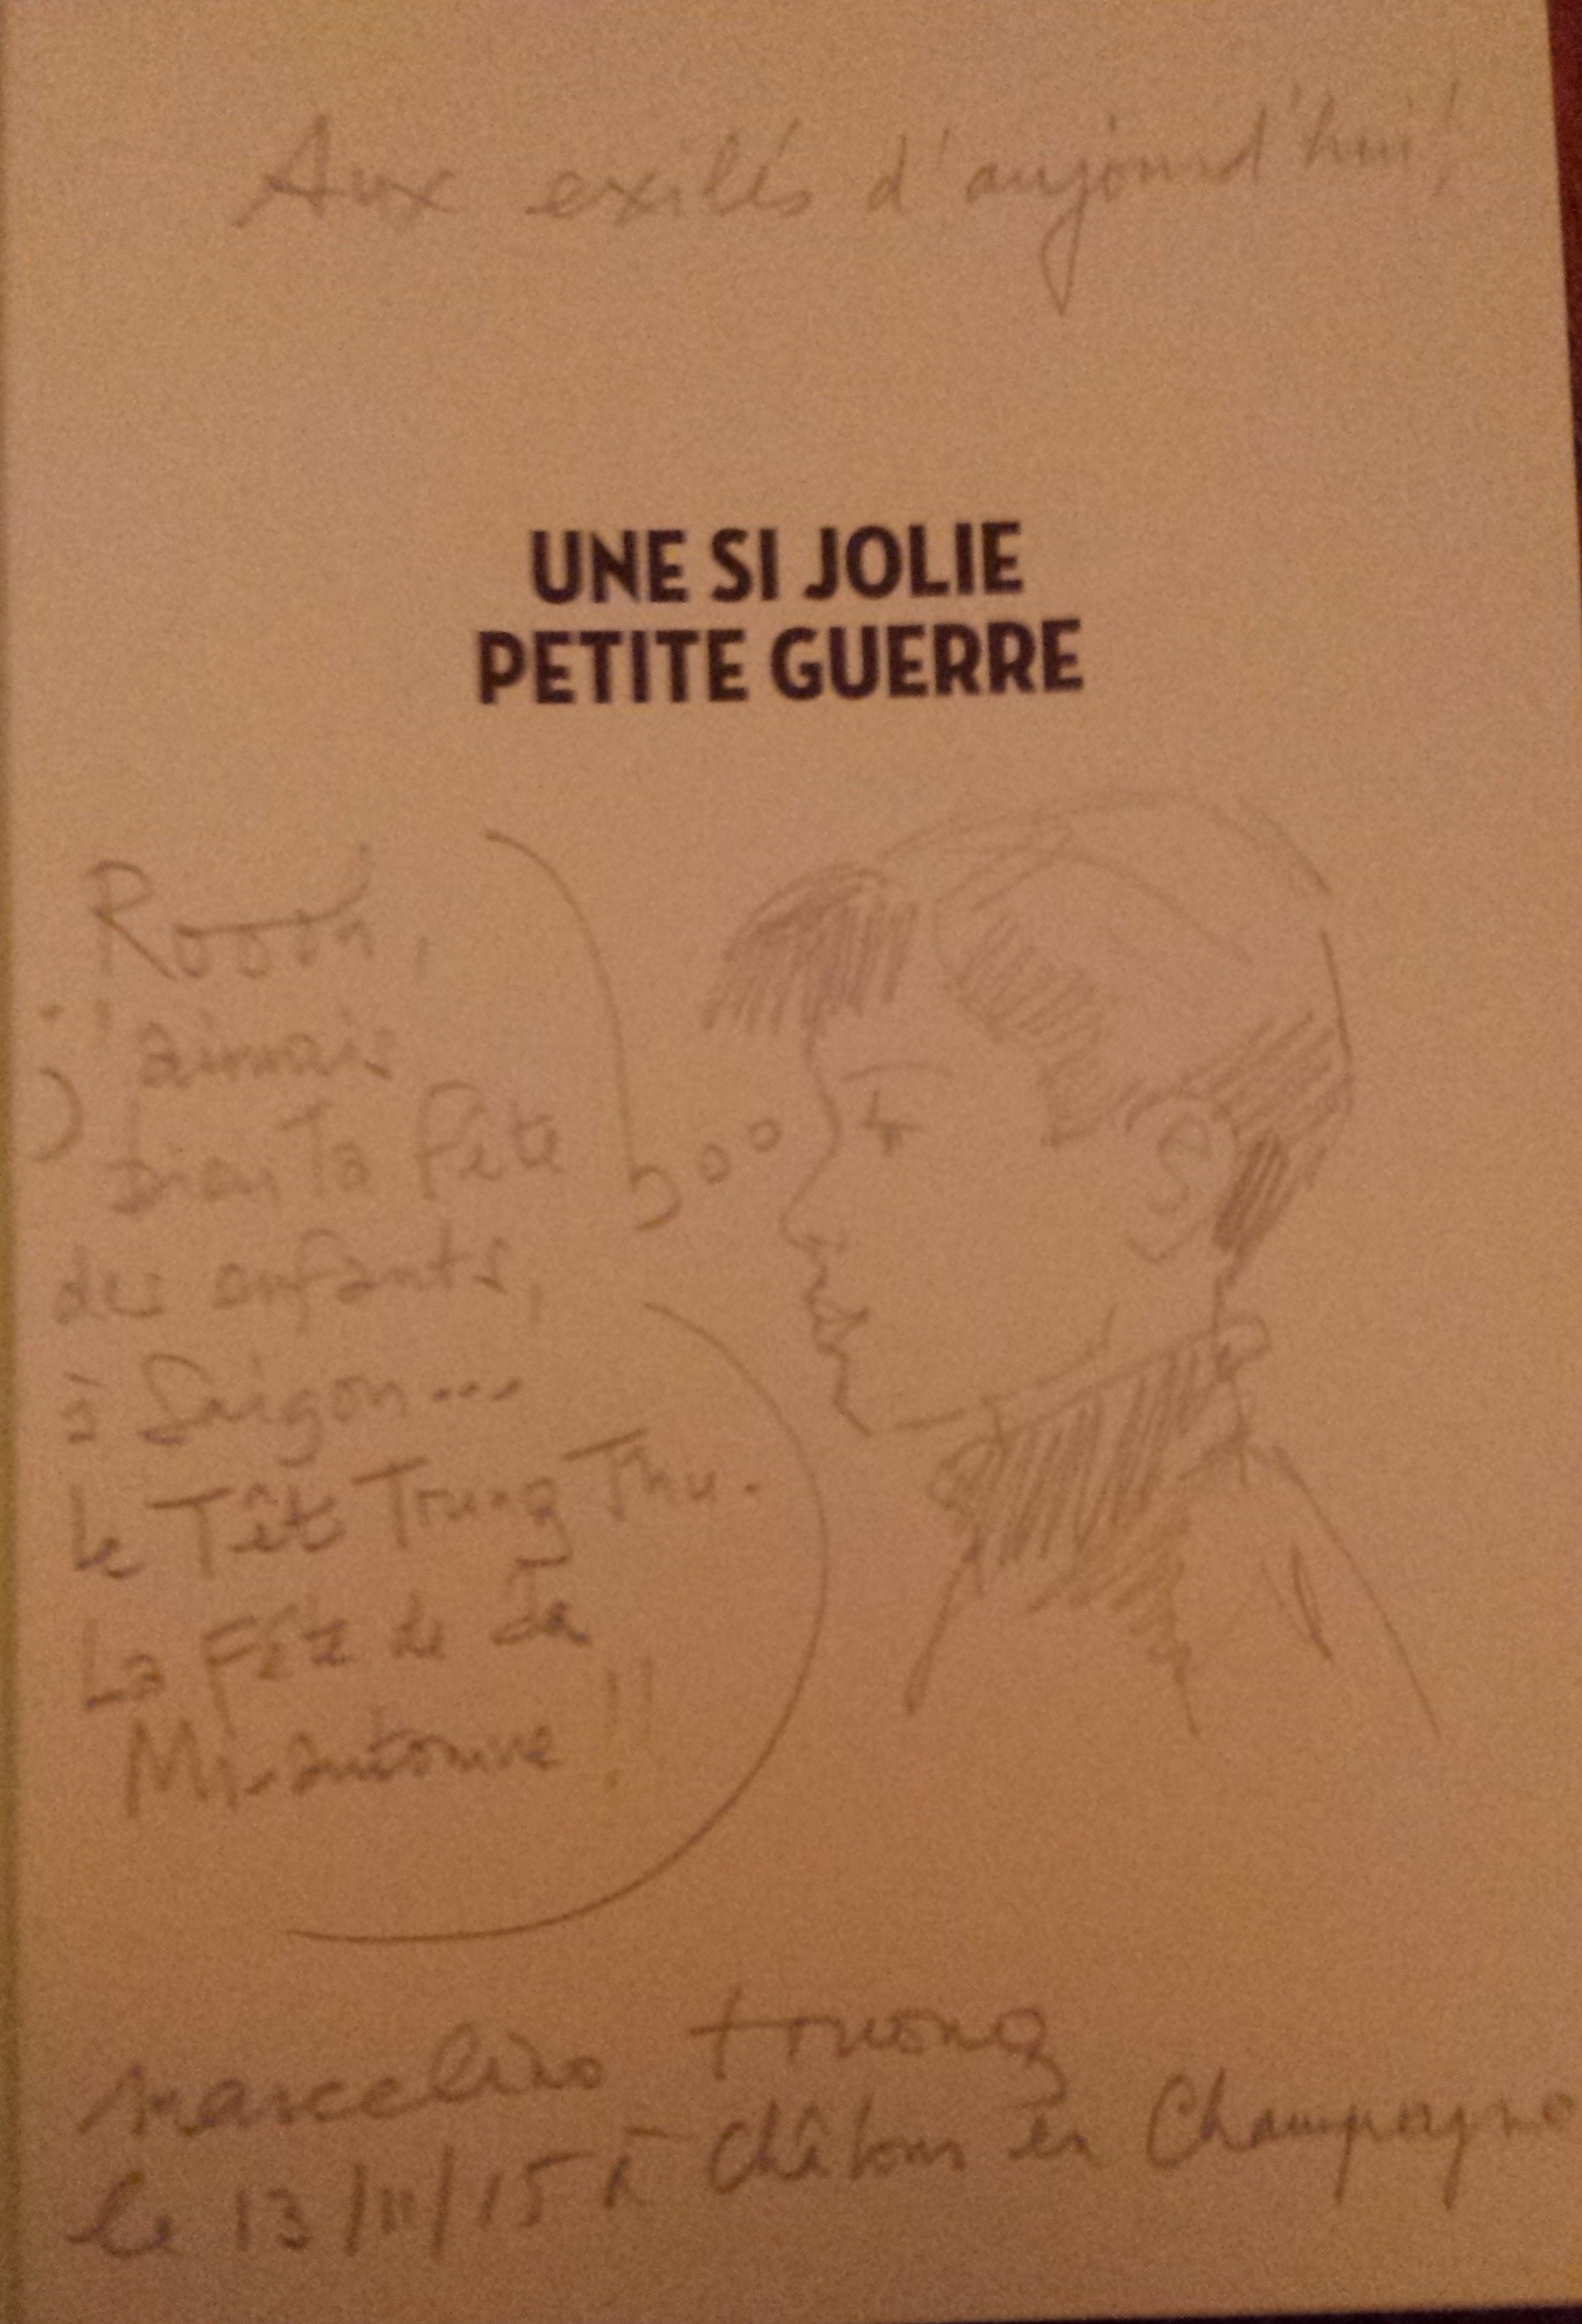 Aux exilés d'aujourd'hui!
UNE SI JOLIE
PETITE GUERRE
Roooh,
j'aimais
bien la fête
des enfants,
à Saigon...
Le Têt Trung Thu.
La Fête de la
Mi-automne !!
marcelino truong
le 13/11/15 à Châlons en Champagne